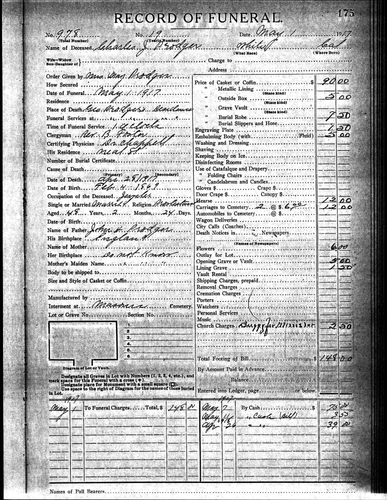 RECORD OF FUNERAL.
175
No. 978 No. 19 Date, May 1 1917
(Total Number) (Yearly Number)
Name of Deceased, Charles J. Prodger White Cal
(What Race) (Where Born)
Wife-Widow
Son-Daughter of
Charge to
Address
Order Given by Mrs. May Prodger
How Secured
Date of Funeral May 1-1917
Residence
Place of Death, Prodger Residence
Funeral Services at
Time of Funeral Service, 1 o'clock
Clergyman Rev. B.
Certifying Physician Dr. Chappell
His Residence
Number of Burial Certificate
Cause of Death
Date of Death, Apr 28 1917
Date of Birth Feb 4 1869
Occupation of the Deceased
Single or Married Religion
Aged 48 Years, 2 Months, 24 Days.
Name of Father John H. Prodger
His Birthplace England
Name of Mother
Her Birthplace do not know
Mother's Maiden Name
Body to be shipped to
Size and Style of Casket or Coffin
Manufactured by
Interment at Masonic Cemetery.
Lot or Grave No. Section No.
Diagram of Lot or Vault.
Designate all Graves in Lot with Numbers (1, 2, 3, 4, etc.), and
mark space for this Funeral with a cross
Designate place for Monument with a small square
Use space to the right of Diagram for the names of those buried
in Lot.
Price of Casket or Coffin $ 80.00
Metallic Lining
(State kind)
Outside Box 5.00
(State kind)
Grave Vault
(State kind)
Burial Robe 7.50
(State kind)
Burial Slippers and Hose
Engraving Plate 1.50
Embalming Body (with Fluid) $ 5.00
Washing and Dressing
Shaving
Keeping Body on Ice
Disinfecting Rooms
Use of Catafalque and Drapery
" Folding Chairs
" Candelabrum and Candles
Gloves $ Crape $
Door Crape $ Canopy $
Hearse 12.00
Carriages to Cemetery 2 @ $ 6.00 12.00
Automobiles to Cemetery @ $
Wagon Deliveries
City Calls (Coaches)
Death Notices in Newspapers.
(Names of Newspapers)
Flowers 6.00
Outlay for Lot
Opening Grave or Vault
Lining Grave 1.50
Vault Rental
Shipping Charges, prepaid
Removal Charges
Cremation Charges
Porters
Watchers
Personal Services
Music
Church Charges Buggy for Minister 2.50
Total Footing of Bill $ 148.00
By Amount Paid in Advance
Balance
Entered into Ledger, page or below.
1917
May 1 To Funeral Charges. Total, $ 148.00
May 7 By Cash
" Cash
Names of Pall Bearers.